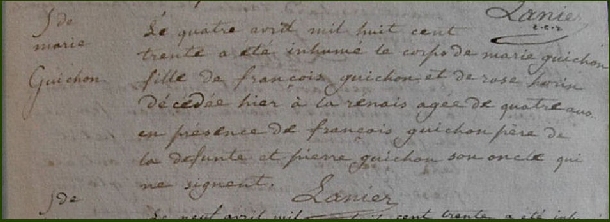 Lanier
J de
marie
Guichon
Le quatre avril mil huit cent
trente a eté inhumé le corps de marie guichon
fille de françois guichon et de rose
décédée hier à la renais agee de quatre ans
en présence de françois guichon père de
la defunte et pierre guichon son oncle qui
ne signent.
Lanier
J de
Le neuf avril mil cent trente a été